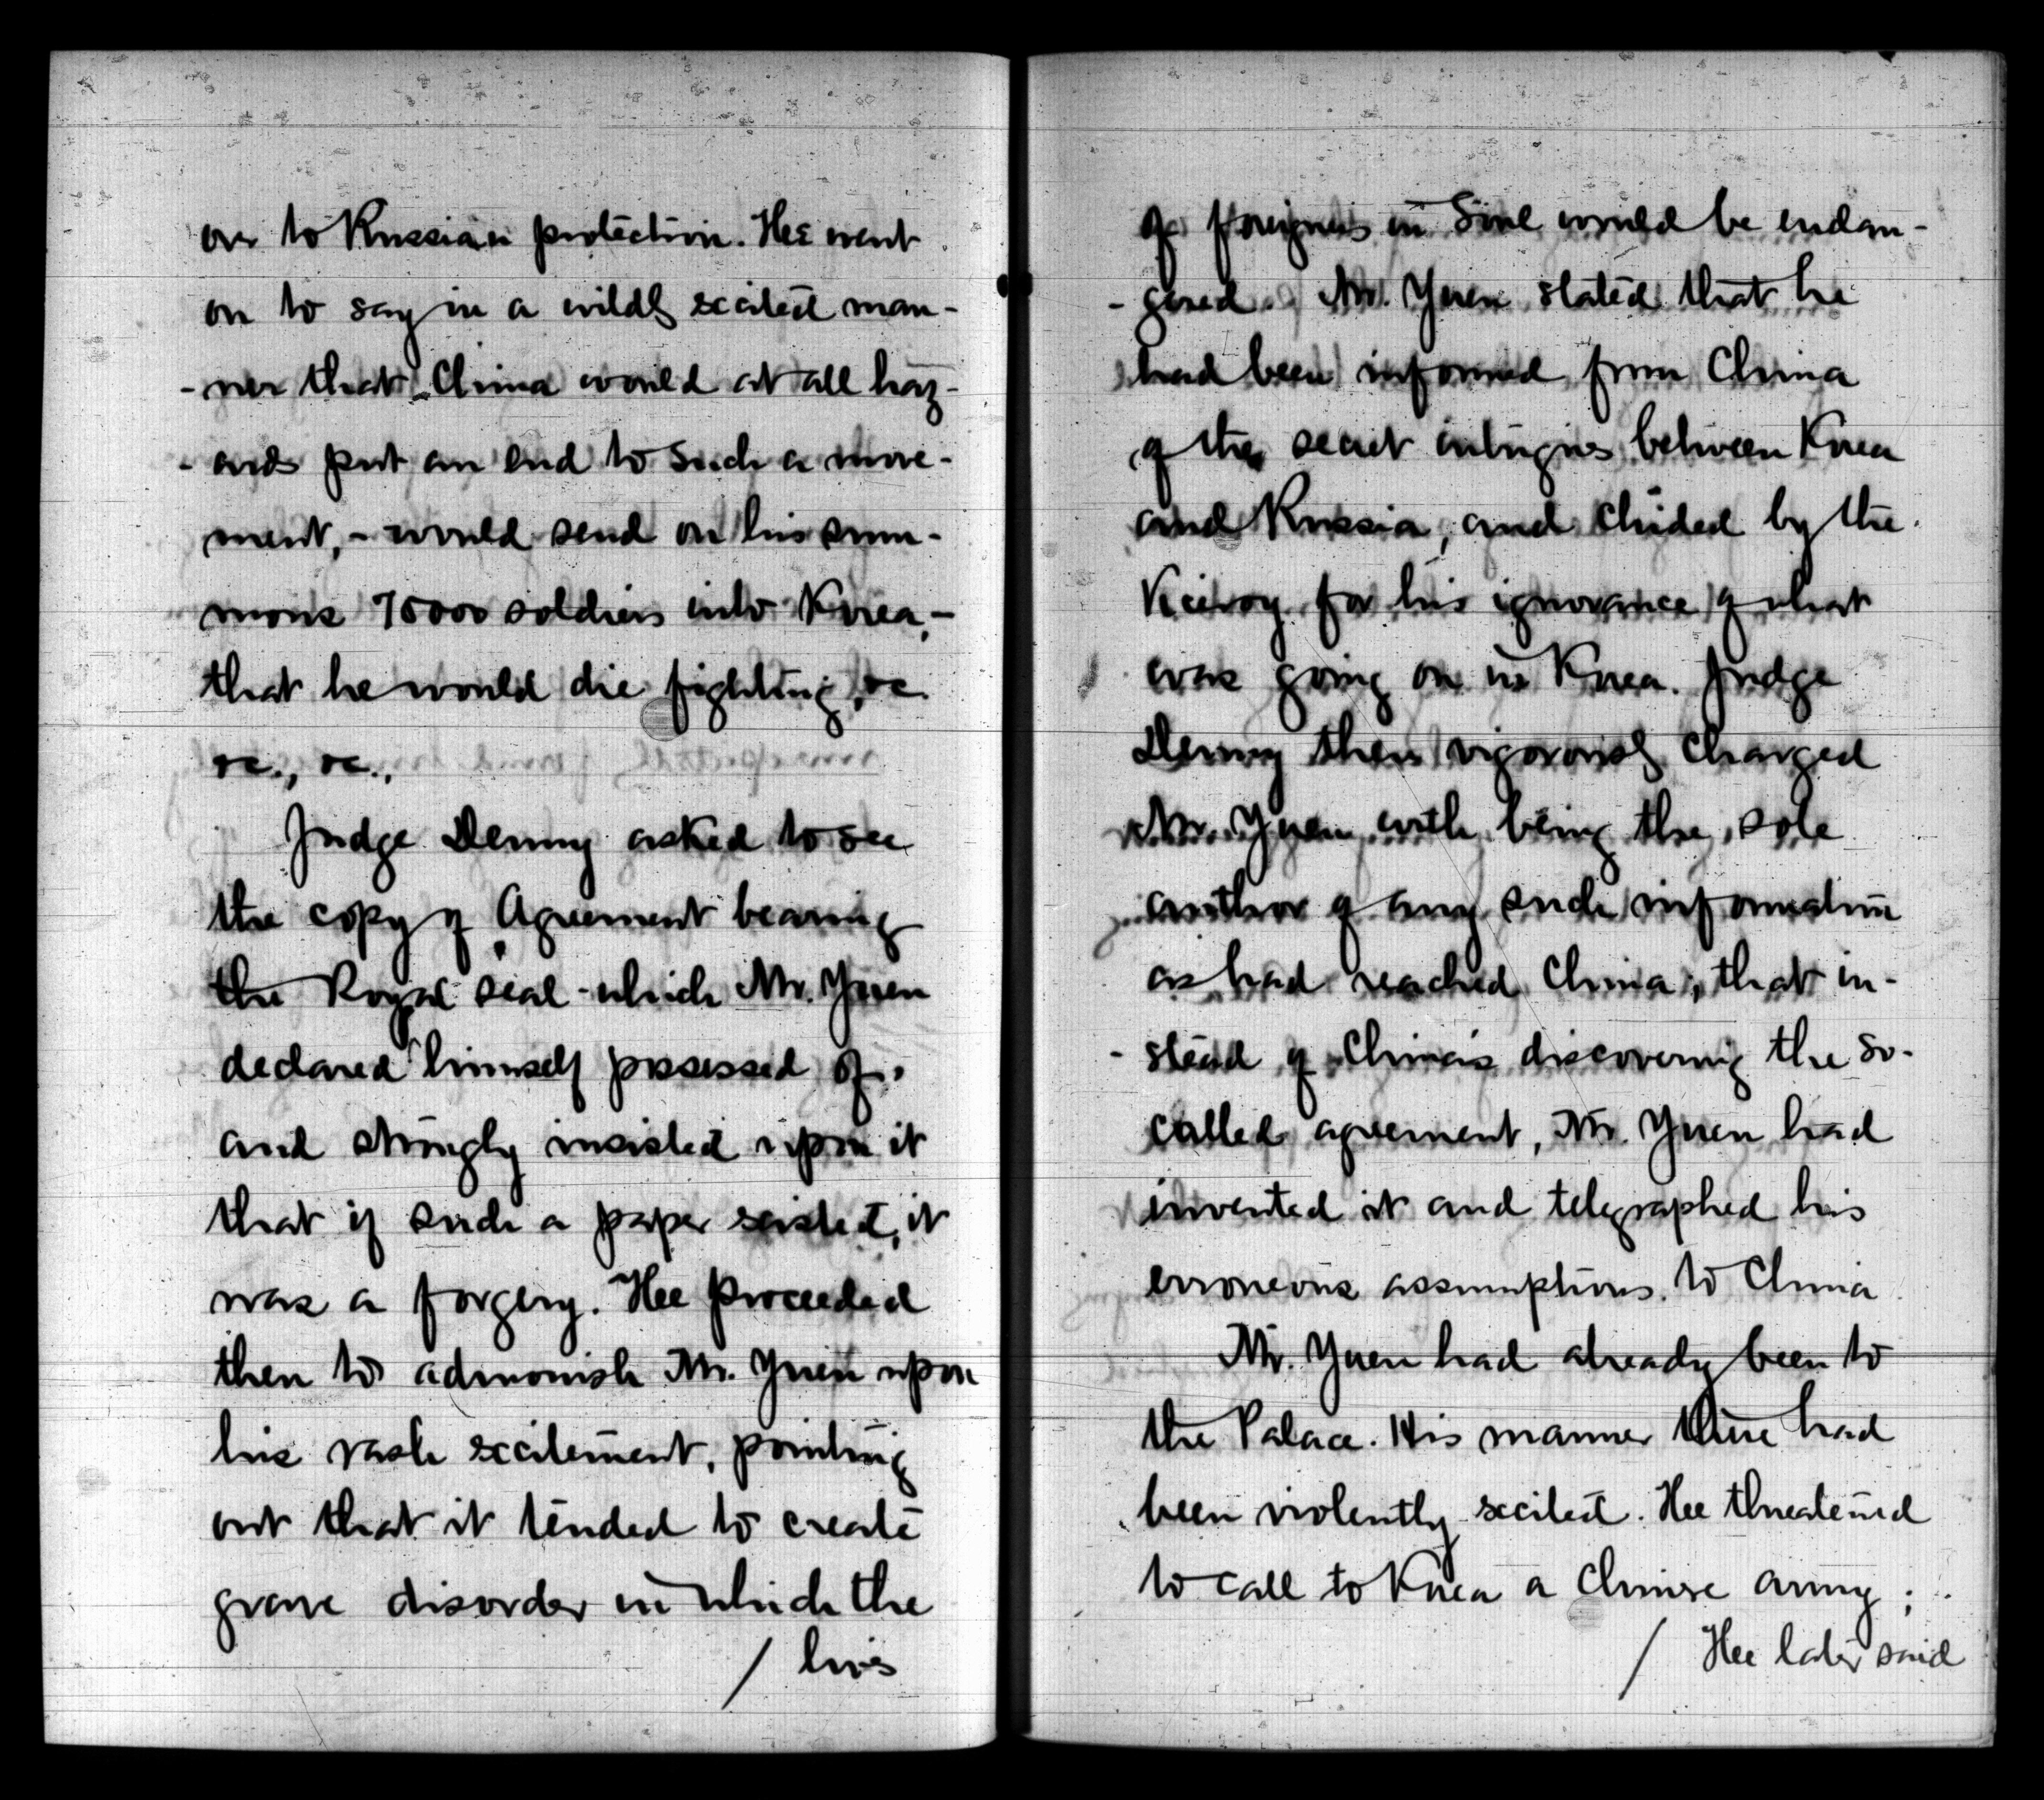 over to Russian protection. Hee went
on to say in a wildly excited man-
-ner that China would at all haz-
-ards put an end to such a move-
ment, - would send on his sum-
mons 75000 soldiers into Korea, -
that he would die fighting, &c.
&c., &c.,
Judge Denny asked to see
the copy of Agreement bearing
the Royal seal which Mr. Yuen
declared himself possessed of,
and strongly insisted upon it
that if such a paper existed, it
was a forgery. Hee proceeded
then to admonish Mr. Yuen upon
his rash excitement, pointing
out that it tended to create
grave disorder in which the
/ lives
of foreigners in Söul would be endan-
-gered. Mr. Yuen stated that he
had been informed from China
of the secret intrigues between Korea
and Russia, and chided by the
Viceroy for his ignorance of what
was going on in Korea. Judge
Denny then vigorously charged
Mr. Yuen with being the sole
author of any such information
as had reached China; that in-
-stead of China's discovering the so-
called agreement, Mr. Yuen had
invented it and telegraphed his
erroneous assumptions to China
Mr. Yuen had already been to
the Palace. His manner there had
been violently excited. Hee threatened
to call to Korea a Chinese army;
/ Hee later said